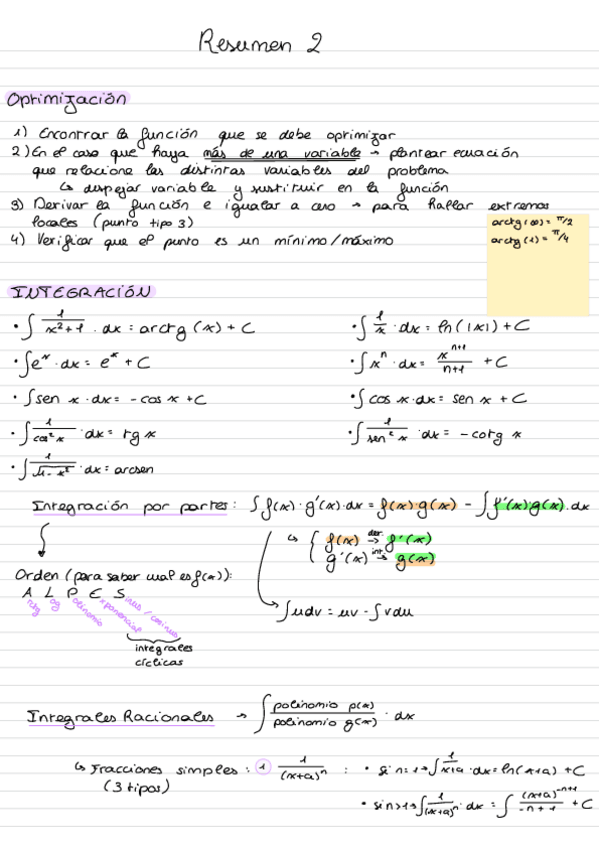 Resumen 2
Optimización
1) Encontrar la función que se debe optimizar
2) En el caso que haya más de una variable → plantear ecuación
que relacione las distintas variables del problema
↳ despejar variable y sustituir en la función
3) Derivar la función e igualar a cero → para hallar extremos
locales (punto tipo 3)
4) Verificar que el punto es un mínimo/máximo
arctg(∞) = π/2
arctg(1) = π/4
INTEGRACIÓN
• ∫ 1/(x²+1) · dx = arctg(x) + C
• ∫ 1/x · dx = ln(|x|) + C
• ∫ eˣ · dx = eˣ + C
• ∫ xⁿ · dx = xⁿ⁺¹/(n+1) + C
• ∫ sen x · dx = - cos x + C
• ∫ cos x · dx = sen x + C
• ∫ 1/cos² x · dx = tg x
• ∫ 1/sen² x · dx = - cotg x
• ∫ 1/√(1-x²) · dx = arcsen
Integración por partes: ∫ f(x) · g'(x) · dx = f(x) · g(x) - ∫ f'(x) · g(x) · dx
↳ { f(x) der. → f'(x)
g'(x) int. → g(x)
Orden (para saber cual es f(x)):
A L P E S
rctg og olinomio xponencial inus / cosinus
∫ u dv = uv - ∫ v du
integrales
cíclicas
Integrales Racionales → ∫ polinomio p(x)/polinomio g(x) · dx
↳ Fracciones simples: 1 1/(x+a)ⁿ : • si n=1 → ∫ 1/(x+a) · dx = ln(x+a) + C
(3 tipos)
• si n>1 → ∫ 1/(x+a)ⁿ · dx = ∫ (x+a)⁻ⁿ⁺¹/(-n+1) + C